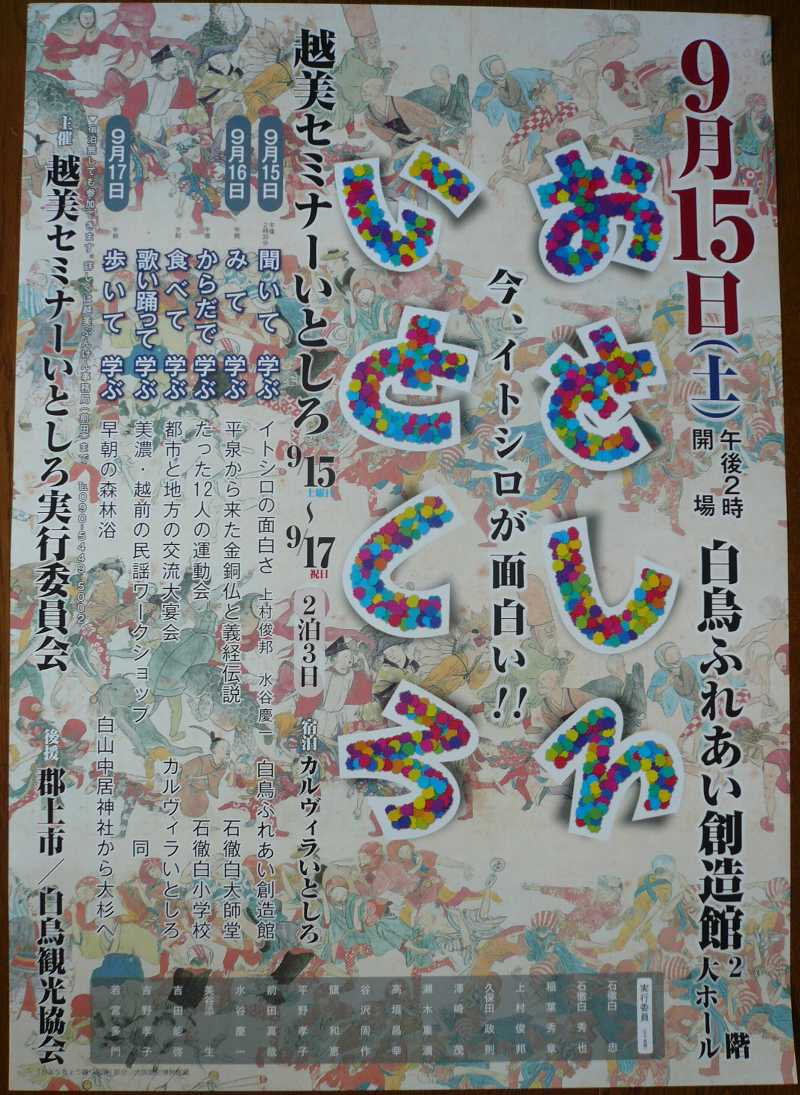 9月15日(土)午後2時開場
白鳥ふれあい創造館2階大ホール
おそしれ
いとしろ
今、イトシロが面白い!!
越美セミナーいとしろ 9/15土曜日~9/17祝日 2泊3日 宿泊カルヴィラいとしろ
9月15日 午後2時30分 聞いて 学ぶ イトシロの面白さ 上村俊邦 水谷慶一 白鳥ふれあい創造館
9月16日 午前 みて 学ぶ 平泉から来た金銅仏と義経伝説 石徹白大師堂
午後 からだで 学ぶ たった12人の運動会 石徹白小学校
午前 食べて 学ぶ 都市と地方の交流大宴会 カルヴィラいとしろ
歌い踊って 学ぶ 美濃・越前の民謡ワークショップ 同
9月17日 午前 歩いて 学ぶ 早朝の森林浴 白山中居神社から大杉へ
主催 越美セミナーいとしろ実行委員会
後援 郡上市/白鳥観光協会
実行委員
石徹白 忠
石徹白 秀也
稲葉 秀章
上村 俊邦
久保田 政則
澤崎 茂
瀬木 重満
高垣 昌幸
谷沢 周作
平野 孝子
前田 真哉
水谷 慶一
吉田 能啓
吉野 孝子
若宮 多門